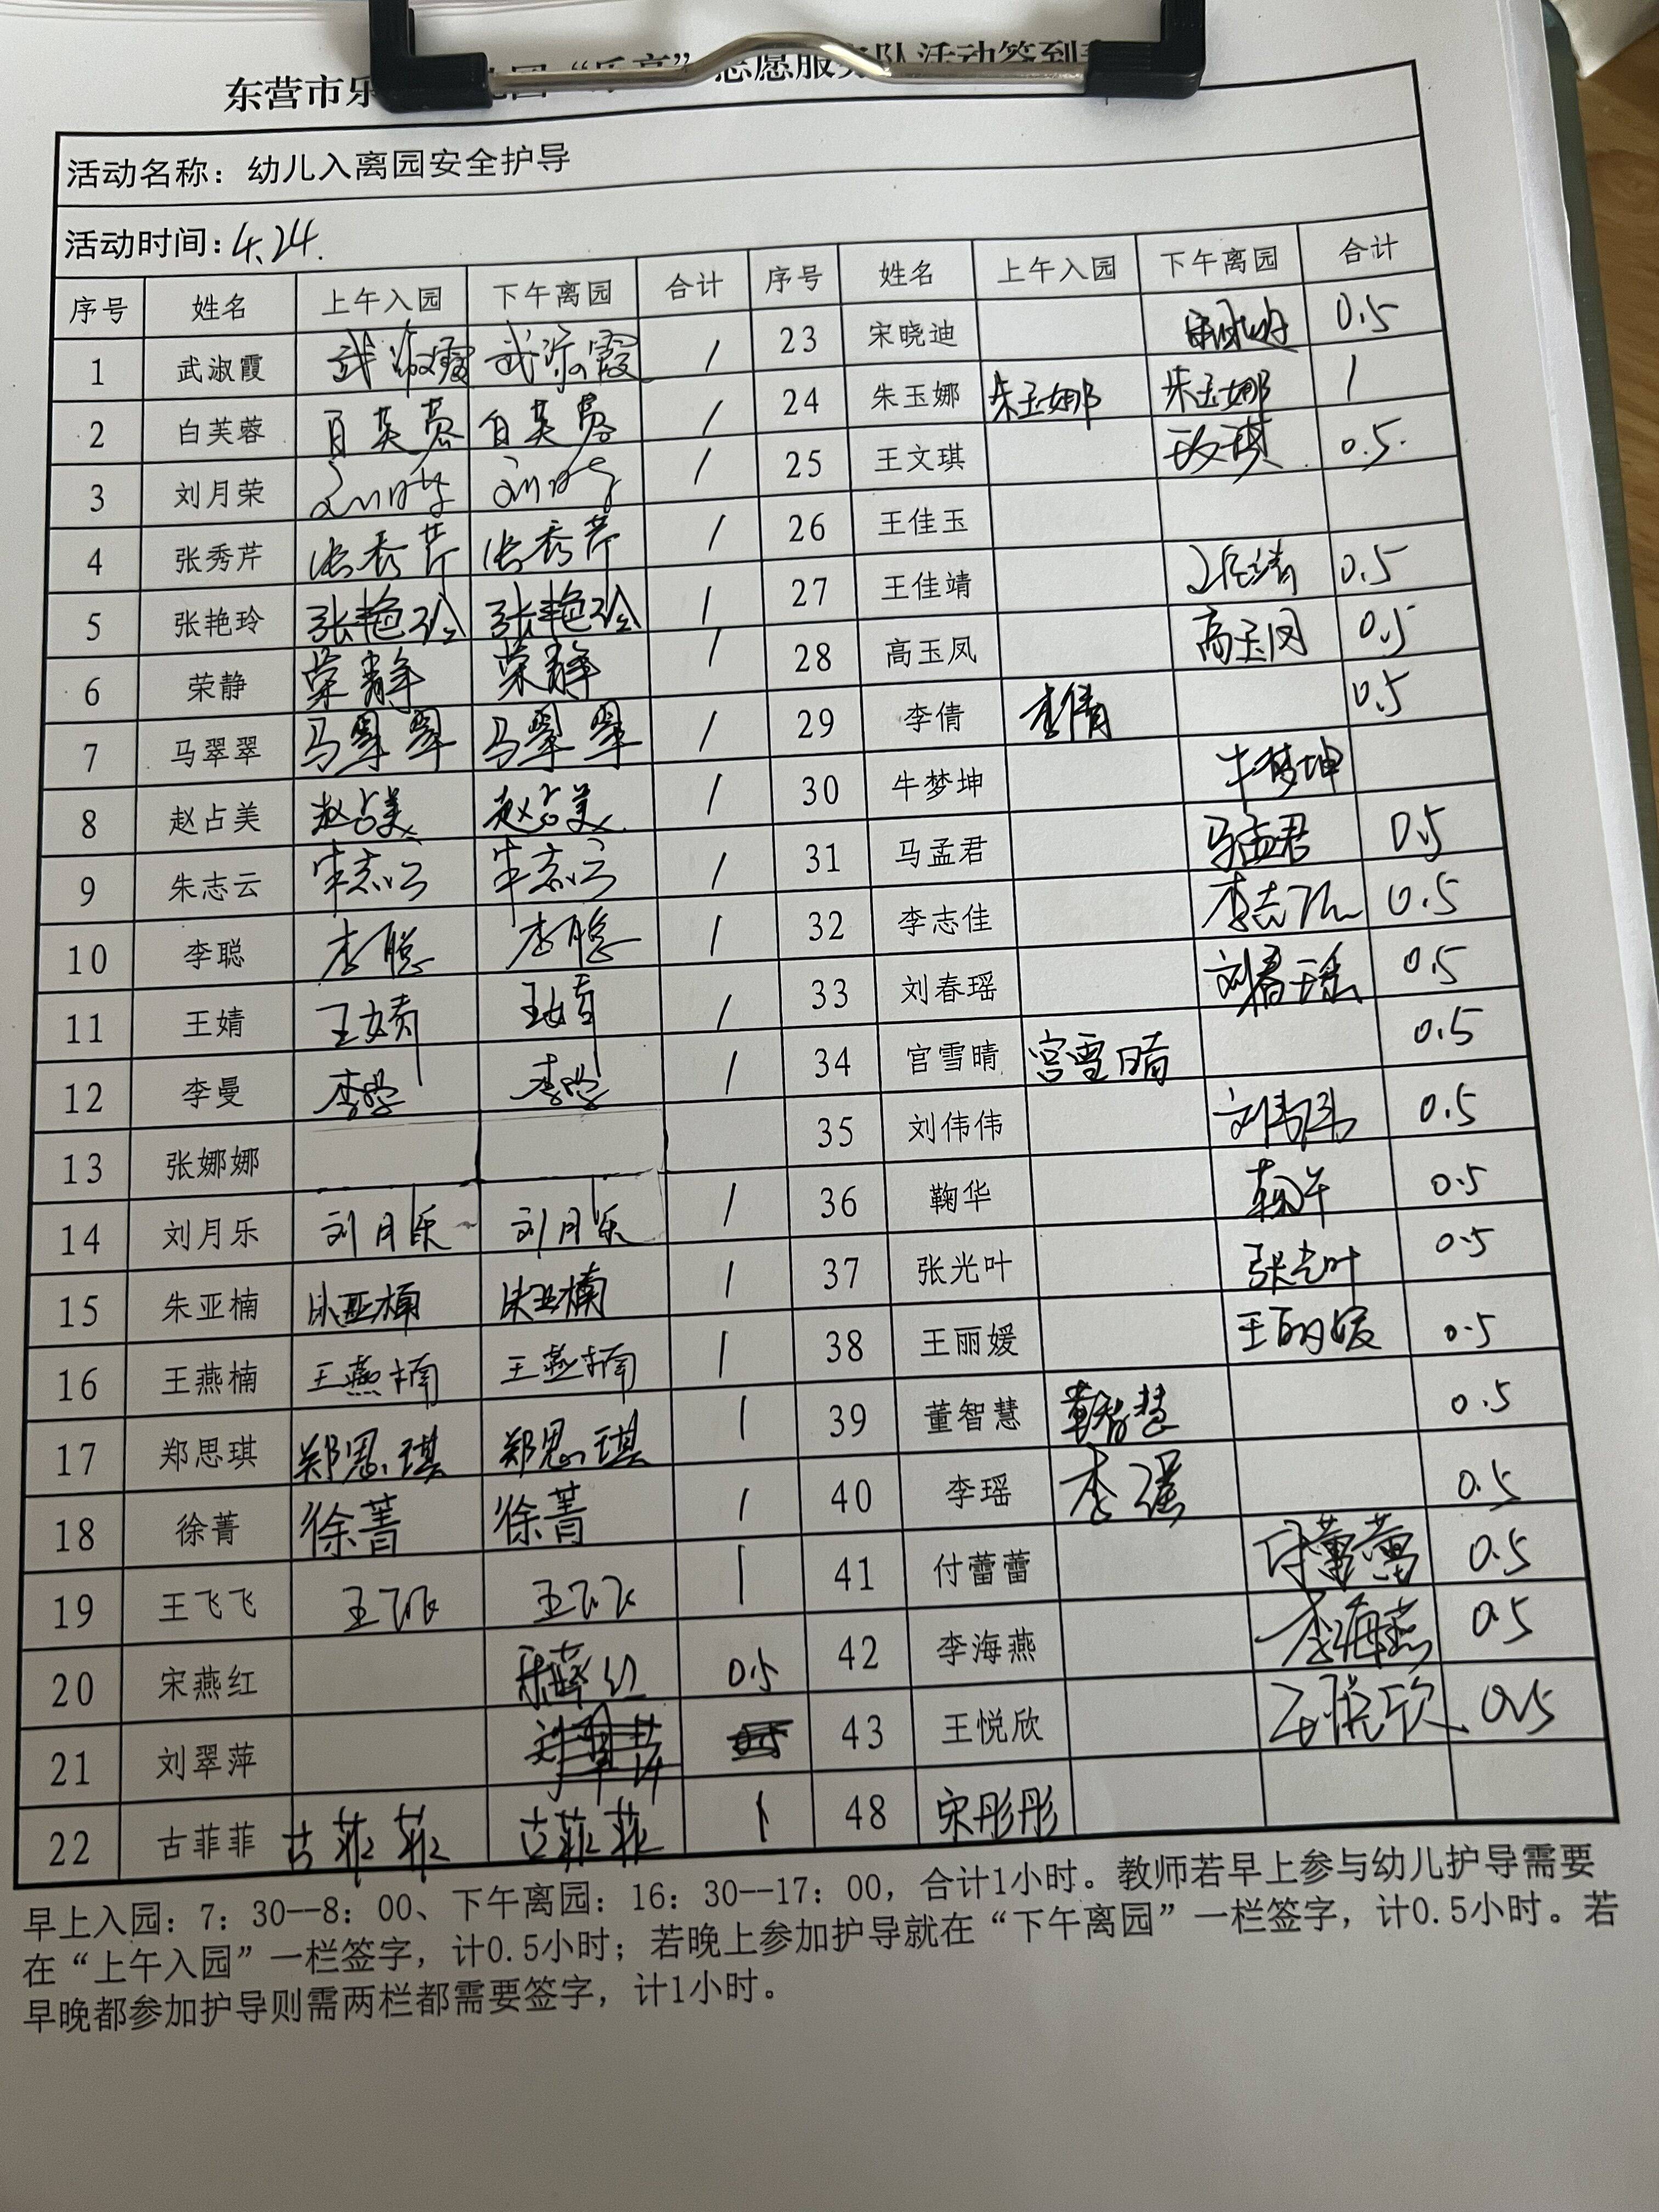 东营市乐 园“乐享”志愿服务队活动签到表
活动名称：幼儿入离园安全护导
活动时间：4.24.
序号 姓名 上午入园 下午离园 合计 序号 姓名 上午入园 下午离园 合计
1 武淑霞 武淑霞 武淑霞 1 23 宋晓迪 宋晓迪 0.5
2 白芙蓉 白芙蓉 白芙蓉 1 24 朱玉娜 朱玉娜 朱玉娜 1
3 刘月荣 刘月荣 刘月荣 1 25 王文琪 王文琪 0.5
4 张秀芹 张秀芹 张秀芹 1 26 王佳玉
5 张艳玲 张艳玲 张艳玲 1 27 王佳靖 王佳靖 0.5
6 荣静 荣静 荣静 1 28 高玉凤 高玉凤 0.5
7 马翠翠 马翠翠 马翠翠 1 29 李倩 李倩 0.5
8 赵占美 赵占美 赵占美 1 30 牛梦坤 牛梦坤
9 朱志云 朱志云 朱志云 1 31 马孟君 马孟君 0.5
10 李聪 李聪 李聪 1 32 李志佳 李志佳 0.5
11 王婧 王婧 王婧 1 33 刘春瑶 刘春瑶 0.5
12 李曼 李曼 李曼 1 34 官雪晴 官雪晴 0.5
13 张娜娜 35 刘伟伟 刘伟伟 0.5
14 刘月乐 刘月乐 刘月乐 1 36 鞠华 鞠华 0.5
15 朱亚楠 朱亚楠 朱亚楠 1 37 张光叶 张光叶 0.5
16 王燕楠 王燕楠 王燕楠 1 38 王丽媛 王丽媛 0.5
17 郑思琪 郑思琪 郑思琪 1 39 董智慧 董智慧 0.5
18 徐菁 徐菁 徐菁 1 40 李瑶 李瑶 0.5
19 王飞飞 王飞飞 王飞飞 1 41 付蕾蕾 付蕾蕾 0.5
20 宋燕红 宋燕红 0.5 42 李海燕 李海燕 0.5
21 刘翠萍 43 王悦欣 王悦欣 0.5
22 古菲菲 古菲菲 古菲菲 1 48 宋彤彤
早上入园：7：30--8：00、下午离园：16：30--17：00，合计1小时。教师若早上参与幼儿护导需要
在“上午入园”一栏签字，计0.5小时；若晚上参加护导就在“下午离园”一栏签字，计0.5小时。若
早晚都参加护导则需两栏都需要签字，计1小时。